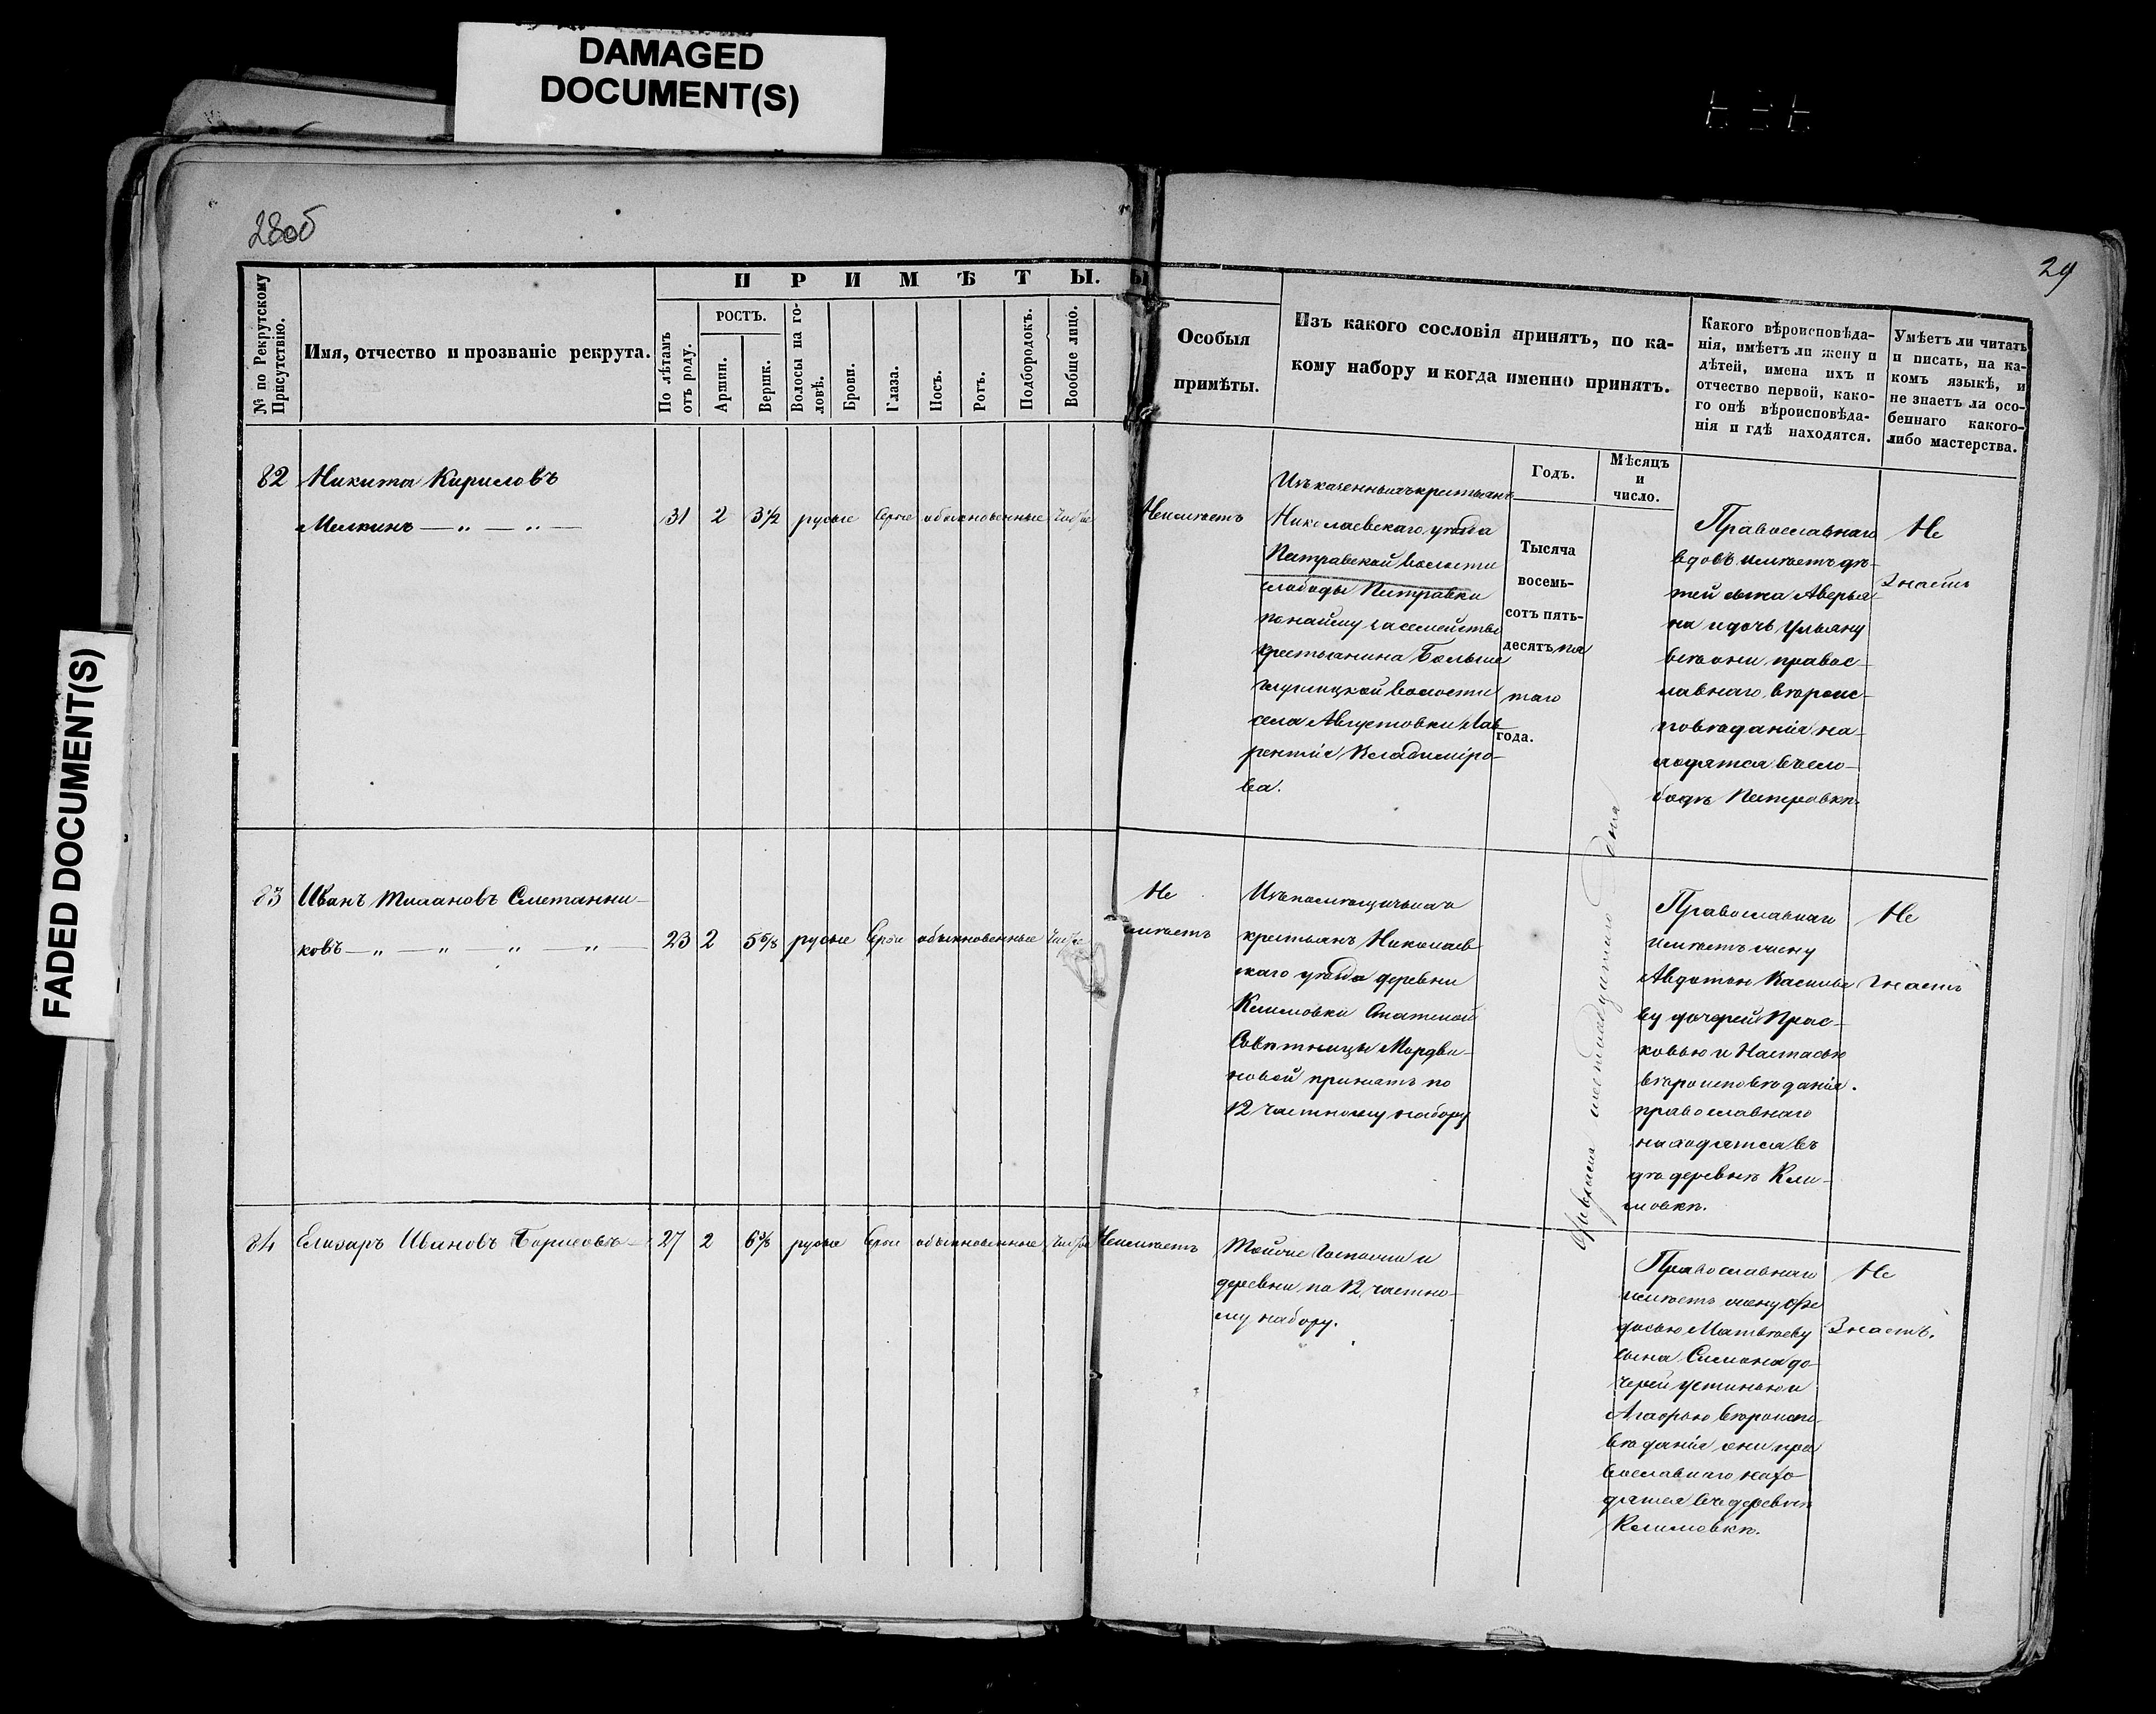 DAMAGED
DOCUMENT(S)
FADED DOCUMENT(S)
28об
29
ПРИМѢТЫ.
№ по Рекрутскому
Присутствію.
Имя, отчество и прозваніе рекрута.
По лѣтамъ
отъ роду.
РОСТЪ.
Аршин.
Вершк.
Волосы на го-
ловѣ.
Брови.
Глаза.
Носъ.
Ротъ.
Подбородокъ.
Вообще лицо.
Особыя
примѣты.
Изъ какого сословія принятъ, по ка-
кому набору и когда именно принятъ.
Какого вѣроисповѣда-
нія, имѣетъ ли жену и
дѣтей, имена ихъ и
отчество первой, како-
го онѣ вѣроисповѣда-
нія и гдѣ находятся.
Умѣетъ ли читать
и писать, на ка-
комъ языкѣ, и
не знаетъ ли осо-
беннаго какого-
либо мастерства.
Годъ.
Мѣсяцъ
и
число.
82 Никита Кириловъ
Мелкинъ — „ — „ —
31 2 3½ русые Серые обыкновенные чистое
Неимѣетъ
Изъ казенныхъ крестьянъ
Николаевскаго уѣзда
Петравской волости
слободы Петравки
по найму за семейство
крестьянина Больше
глушицкой волости
села Августовки Лав
рентія Владиміро-
ва.
Тысяча
восемь-
сотъ пять-
десятъ пя
таго
года.
Православнаго
вдовъ имѣетъ дѣ-
тей сына Аверья-
на и дочь Ульяну
всѣ они правос-
лавнаго вѣроис-
повѣданія на-
ходятся въ сло-
бодѣ Петровкѣ.
Не
знаетъ
83 Иванъ Миановъ Сметанни-
ковъ — „ — „ — „ — „ —
23 2 5⅝ русые Серые обыкновенные чистое
Не
имѣетъ
Изъ помѣщичьихъ
крестьянъ Николаев
скаго уѣзда деревни
Климовки Статской
Совѣтницы Мордви-
новой принятъ по
12 частному набору
Февраля шестнадцатаго дня
Православнаго
имѣетъ жену
Авдотью Василье
ву дочерей Прас-
ковью и Настасью
вѣроисповѣданія.
православнаго
находятся въ
дѣ деревнѣ Кли-
мовкѣ.
Не
Знаетъ
84 Елизаръ Ивановъ Борисовъ —
27 2 6⅜ русые Серые обыкновенные чистое
Неимѣетъ
Тойже Госпожи и
деревни по 12 частно-
му набору.
Православнаго
имѣетъ жену Фе
досью Матвѣеву
сына Симона до-
черей Устинью и
Агафью вѣроиспо-
вѣданія они пра
вославнаго нахо
дятся въ деревнѣ
Климовкѣ.
Не
Знаетъ.